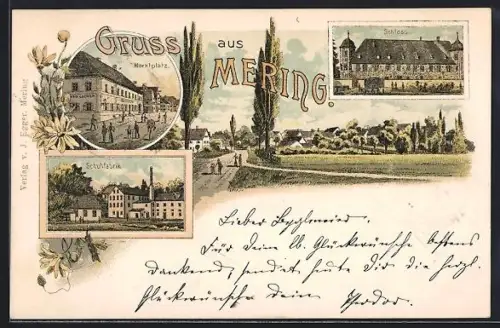 Gruss aus
MERING.
Marktplatz.
Schloss.
Schuhfabrik.
Verlag v. J. Egger, Mering
Lieber
Für Deine lb. Glückwünsche bestens
dankend, sendet heute Dir die herzl.
Glückwünsche Dein Theodor.